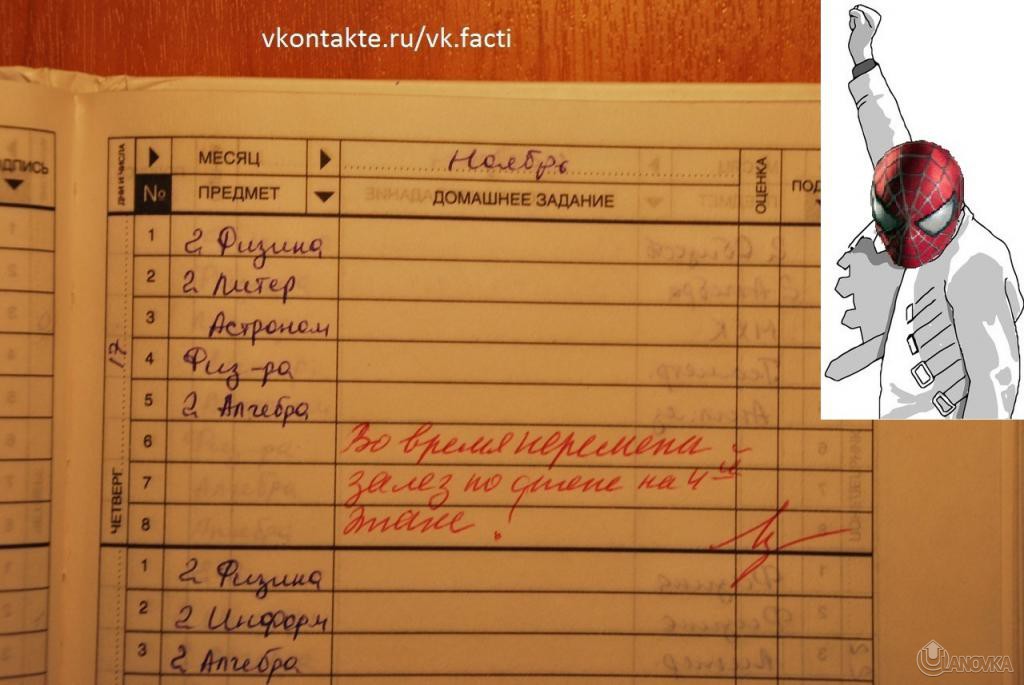 vkontakte.ru/vk.facti
ДПИСЬ
ДНИ И ЧИСЛА
МЕСЯЦ
Ноябрь
№
ПРЕДМЕТ
ДОМАШНЕЕ ЗАДАНИЕ
ОЦЕНКА
ПОД
17
ЧЕТВЕРГ
1 2 Физика
2 2 Литер
3 Астроном
4 Физ-ра
5 2 Алгебра
6 Во время перемены
7 залез по стене на 4-й
8 этаж!
1 2 Физика
2 2 Информ
3 2 Алгебра
ULANOVKA